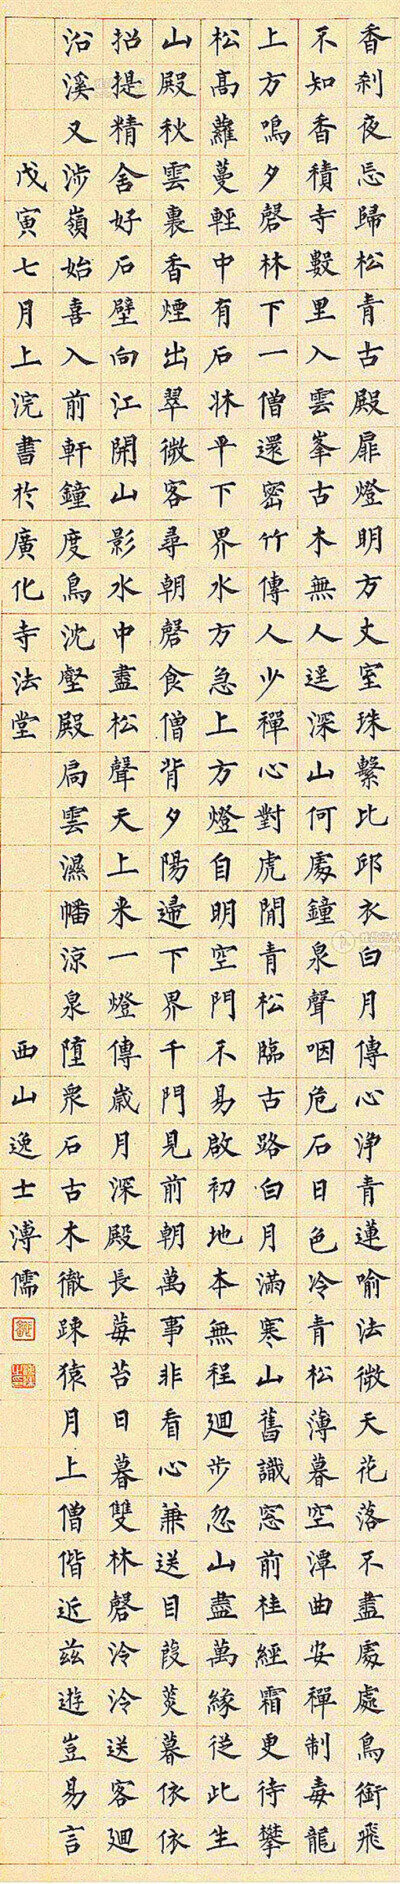 香刹夜忘歸松青古殿扉燈明方丈室珠繫比邱衣白月傳心淨青蓮喻法微天花落不盡處處鳥銜飛
不知香積寺數里入雲峯古木無人逕深山何處鐘泉聲咽危石日色冷青松薄暮空潭曲安禪制毒龍
上方鳴夕磬林下一僧還密竹傳人少禪心對虎閒青松臨古路白月滿寒山舊識窓前桂經霜更待攀
松高蘿蔓輕中有石牀平下界水方急上方燈自明空門不易啟初地本無程迴步忽山盡萬緣從此生
山殿秋雲裏香煙出翠微客尋朝磬食僧背夕陽歸下界千門見前朝萬事非看心兼送目葭菼暮依依
招提精舍好石壁向江開山影水中盡松聲天上来一燈傳歲月深殿長莓苔日暮雙林磬泠泠送客迴
沿溪又涉嶺始喜入前軒鐘度鳥沈壑殿扃雲濕幡涼泉墮衆石古木徹踈猿月上僧偕近茲遊豈易言
戊寅七月上浣書於廣化寺法堂 西山逸士溥儒